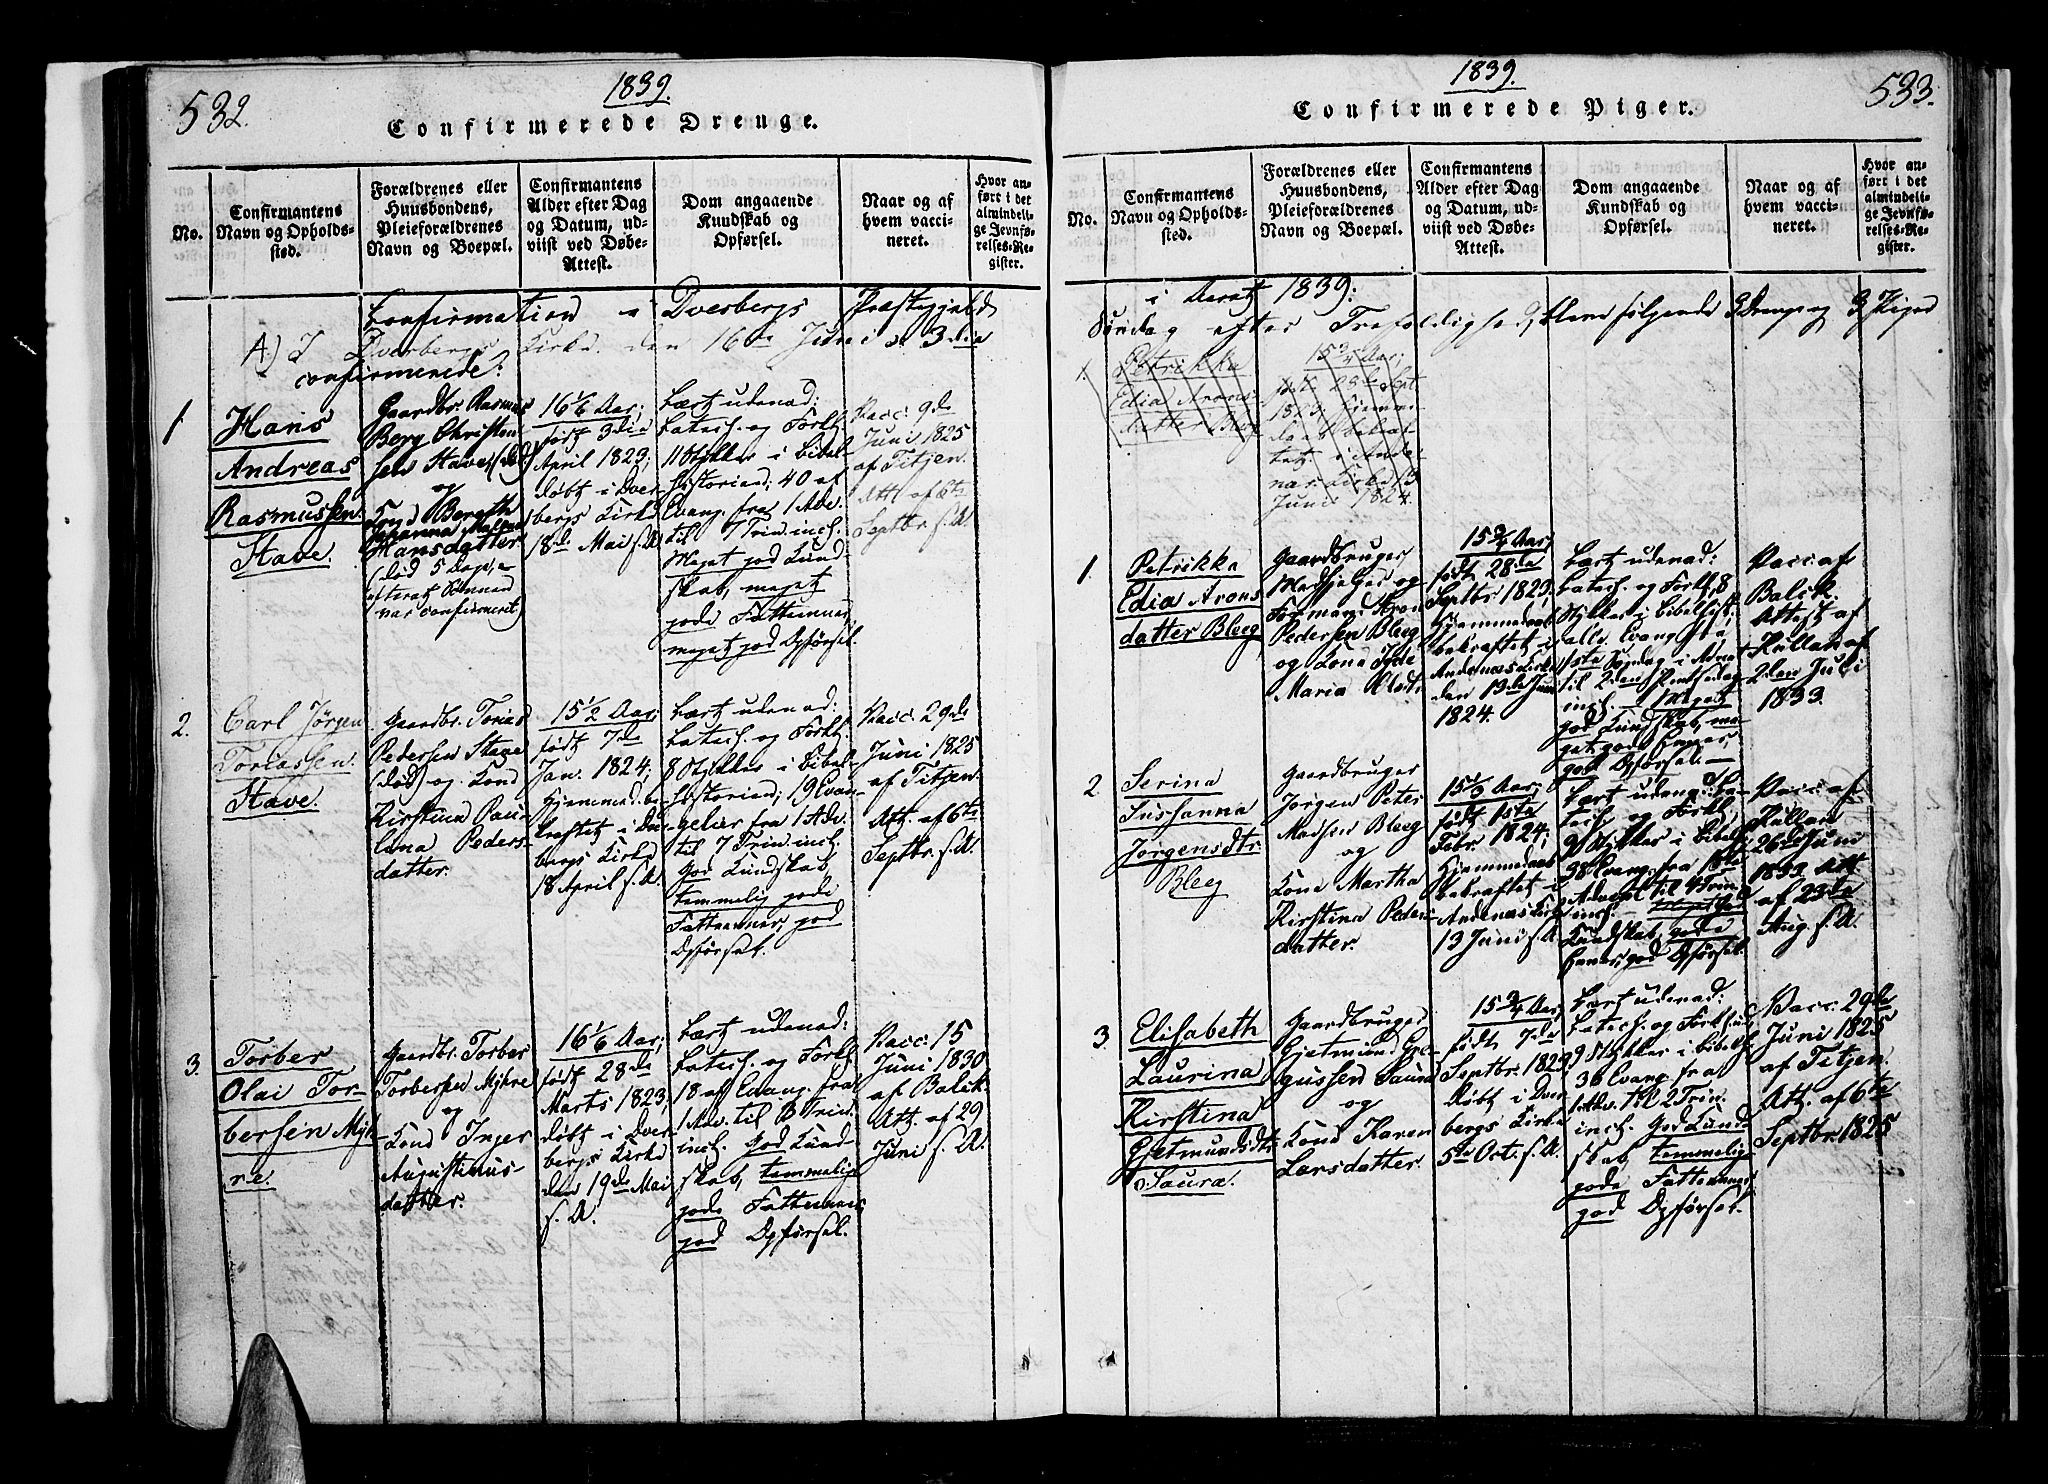 532.
1839.
Confirmerede Drenge.
No.
Confirmantens
Navn og Opholds-
sted.
Forældrenes eller
Huusbondens,
Pleieforældrenes
Navn og Boepæl.
Confirmantens
Alder efter Dag
og Datum, ud-
viist ved Døbe-
Attest.
Dom angaaende
Kundskab og
Opførsel.
Naar og af
hvem vacci-
neret.
Hvor an-
ført i det
almindeli-
ge Jevnfø-
relses-Re-
gister.
Confirmation i Dverbergs Præstegjeld
A.) I Dverbergs Kirke den 16de Juni s. 3die
confirmerede:
1
Hans
Andreas
Rasmussen
Stave.
Gaardbr. Rasmus
Berg Christen
sen Stave, (død)
og
Johanna
Hansdatter
(død 5 Dage, e-
confirmeret)
16 1/6 Aar;
født 3die
April 1823;
døbt i Dver
bergs Kirke
18de Mai s. A
Lært udenad:
Catech. og Forkl.
11 Stykker i Bibel
historien; 40 af
Evang. fra 1 Adv.
til 7 Trin. incl.
Meget god Kund
skab, meget
gode Fatteevner,
meget god Opførsel.
Vacc. 9de
Juni 1825
af Titjen.
Att. af 6te
Septbr. s. A
2.
Carl Jørgen
Toriassen
Stave.
Gaardbr. Torias
Pedersen Stave
(død) og Kone
Kirstina Pau-
lina Peders-
datter.
15 1/2 Aar;
født 7de
Jan. 1824;
Hjemmed. be
kræftet i Dver
bergs Kirke
18 April s. A
Lært udenad:
Catech. og Forkl.
8 Stykker i Bibel-
historien; 19 Evan-
gelier fra 1 Adv.
til 7 Trin. incl.
God Kundskab,
temmelig gode
Fatteevner, god
Opførsel.
Vacc. 29de
Juni 1825
af Titjen.
Att. af 6te
Septbr. s. A.
3.
Torber
Olai Tor-
bersen Myh-
re.
Gaardbr. Torber
Torbersen Myhre
og
Kone Inger
Augustinus-
datter.
16 1/6 Aar;
født 28de
Marts 1823;
døbt i Dver
bergs Kirke
den 19de Mai
s. A.
Lært udenad:
Catech. og Forkl.
18 af Evang. fra
1 Adv. til 3 Trin.
incl. God Kund-
skab, temmelig
gode Fatteevner,
god Opførsel.
Vacc. 15
Juni 1830
af Balck.
Att. af 29
Juni s. A.
1839.
533.
Confirmerede Piger.
No.
Confirmantens
Navn og Opholds-
sted.
Forældrenes eller
Huusbondens,
Pleieforældrenes
Navn og Boepæl.
Confirmantens
Alder efter Dag
og Datum, ud-
viist ved Døbe-
Attest.
Dom angaaende
Kundskab og
Opførsel.
Naar og af
hvem vacci-
neret.
Hvor an-
ført i det
almindeli-
ge Jevnfø-
relses-Re-
gister.
i Aaret 1839:
Søndag efter Trefoldighed, bleve følgende 3 Drenge og 3 Piger
1.
Petrikka
Edia Arons-
datter Bleeg
15 3/4 Aar;
født 28de Sept
1823; Hjemme
daab bekræf-
tet i Ande-
næs Kirke 13
Juni 1824.
1.
Petrikka
Edia Arons
datter Bleeg
Gaardbruger
Medhjelper og
Formand Aron
Pedersen Bleeg
og Kone
Maria
15 3/4 Aar;
født 28de
Septbr. 1823,
Hjemmedaab
bekræftet i
Andenæs Kirke
den 13de Juni
1824.
Lært udenad:
Catech. og Forkl. 8
Stykker i Bibelhist.
alle Evang. fra
1ste Søndag i Advent
til 2den Pintsedag
incl. Meget
god Kundskab, me-
get gode Evner,
god Opførsel.
Vacc. af
Balck.
Attest af
Kullan af
2den Juli
1833.
2
Serina
Susanna
Jørgensdtr.
Bleeg
Gaardbruger
Jørgen Peter
Madsen Bleeg
og
Kone Martha
Kirstina Peders
datter.
født 1ste
Febr. 1824;
Hjemmedaab
bekræftet i
Andenæs Kirke
13 Juni s. A.
Lært udenad: Ca-
tech. og Forkl.
9 Stykker i Bibelh.
38 Evang. fra 1ste
Advent til 4 Trin
incl.
Kundskab, gode
Evner, god Opførsel.
Vacc. af
Kullan
26de Juni
1833. Att.
af 23de
Aug. s. A.
3.
Elisabeth
Laurina
Kirstina
Gjetmundsdtr
Saura.
Gaardbruger
Gjetmund Gre-
gussen Saura
og
Kone Karen
Larsdatter.
15 3/4 Aar;
født 7de
Septbr. 1823
døbt i Dver
bergs Kirke
5te Oct. s. A.
Lært udenad:
Catech. og Forkl. hist
9 Stykker i Bibelh.
36 Evang. fra
1 Adv. til 2 Trin.
incl. God Kund-
skab, temmelig
gode Fatteevner,
god Opførsel.
Vacc. 29de
Juni 1825
af Titjen.
Att. af 6te
Septbr. 1825